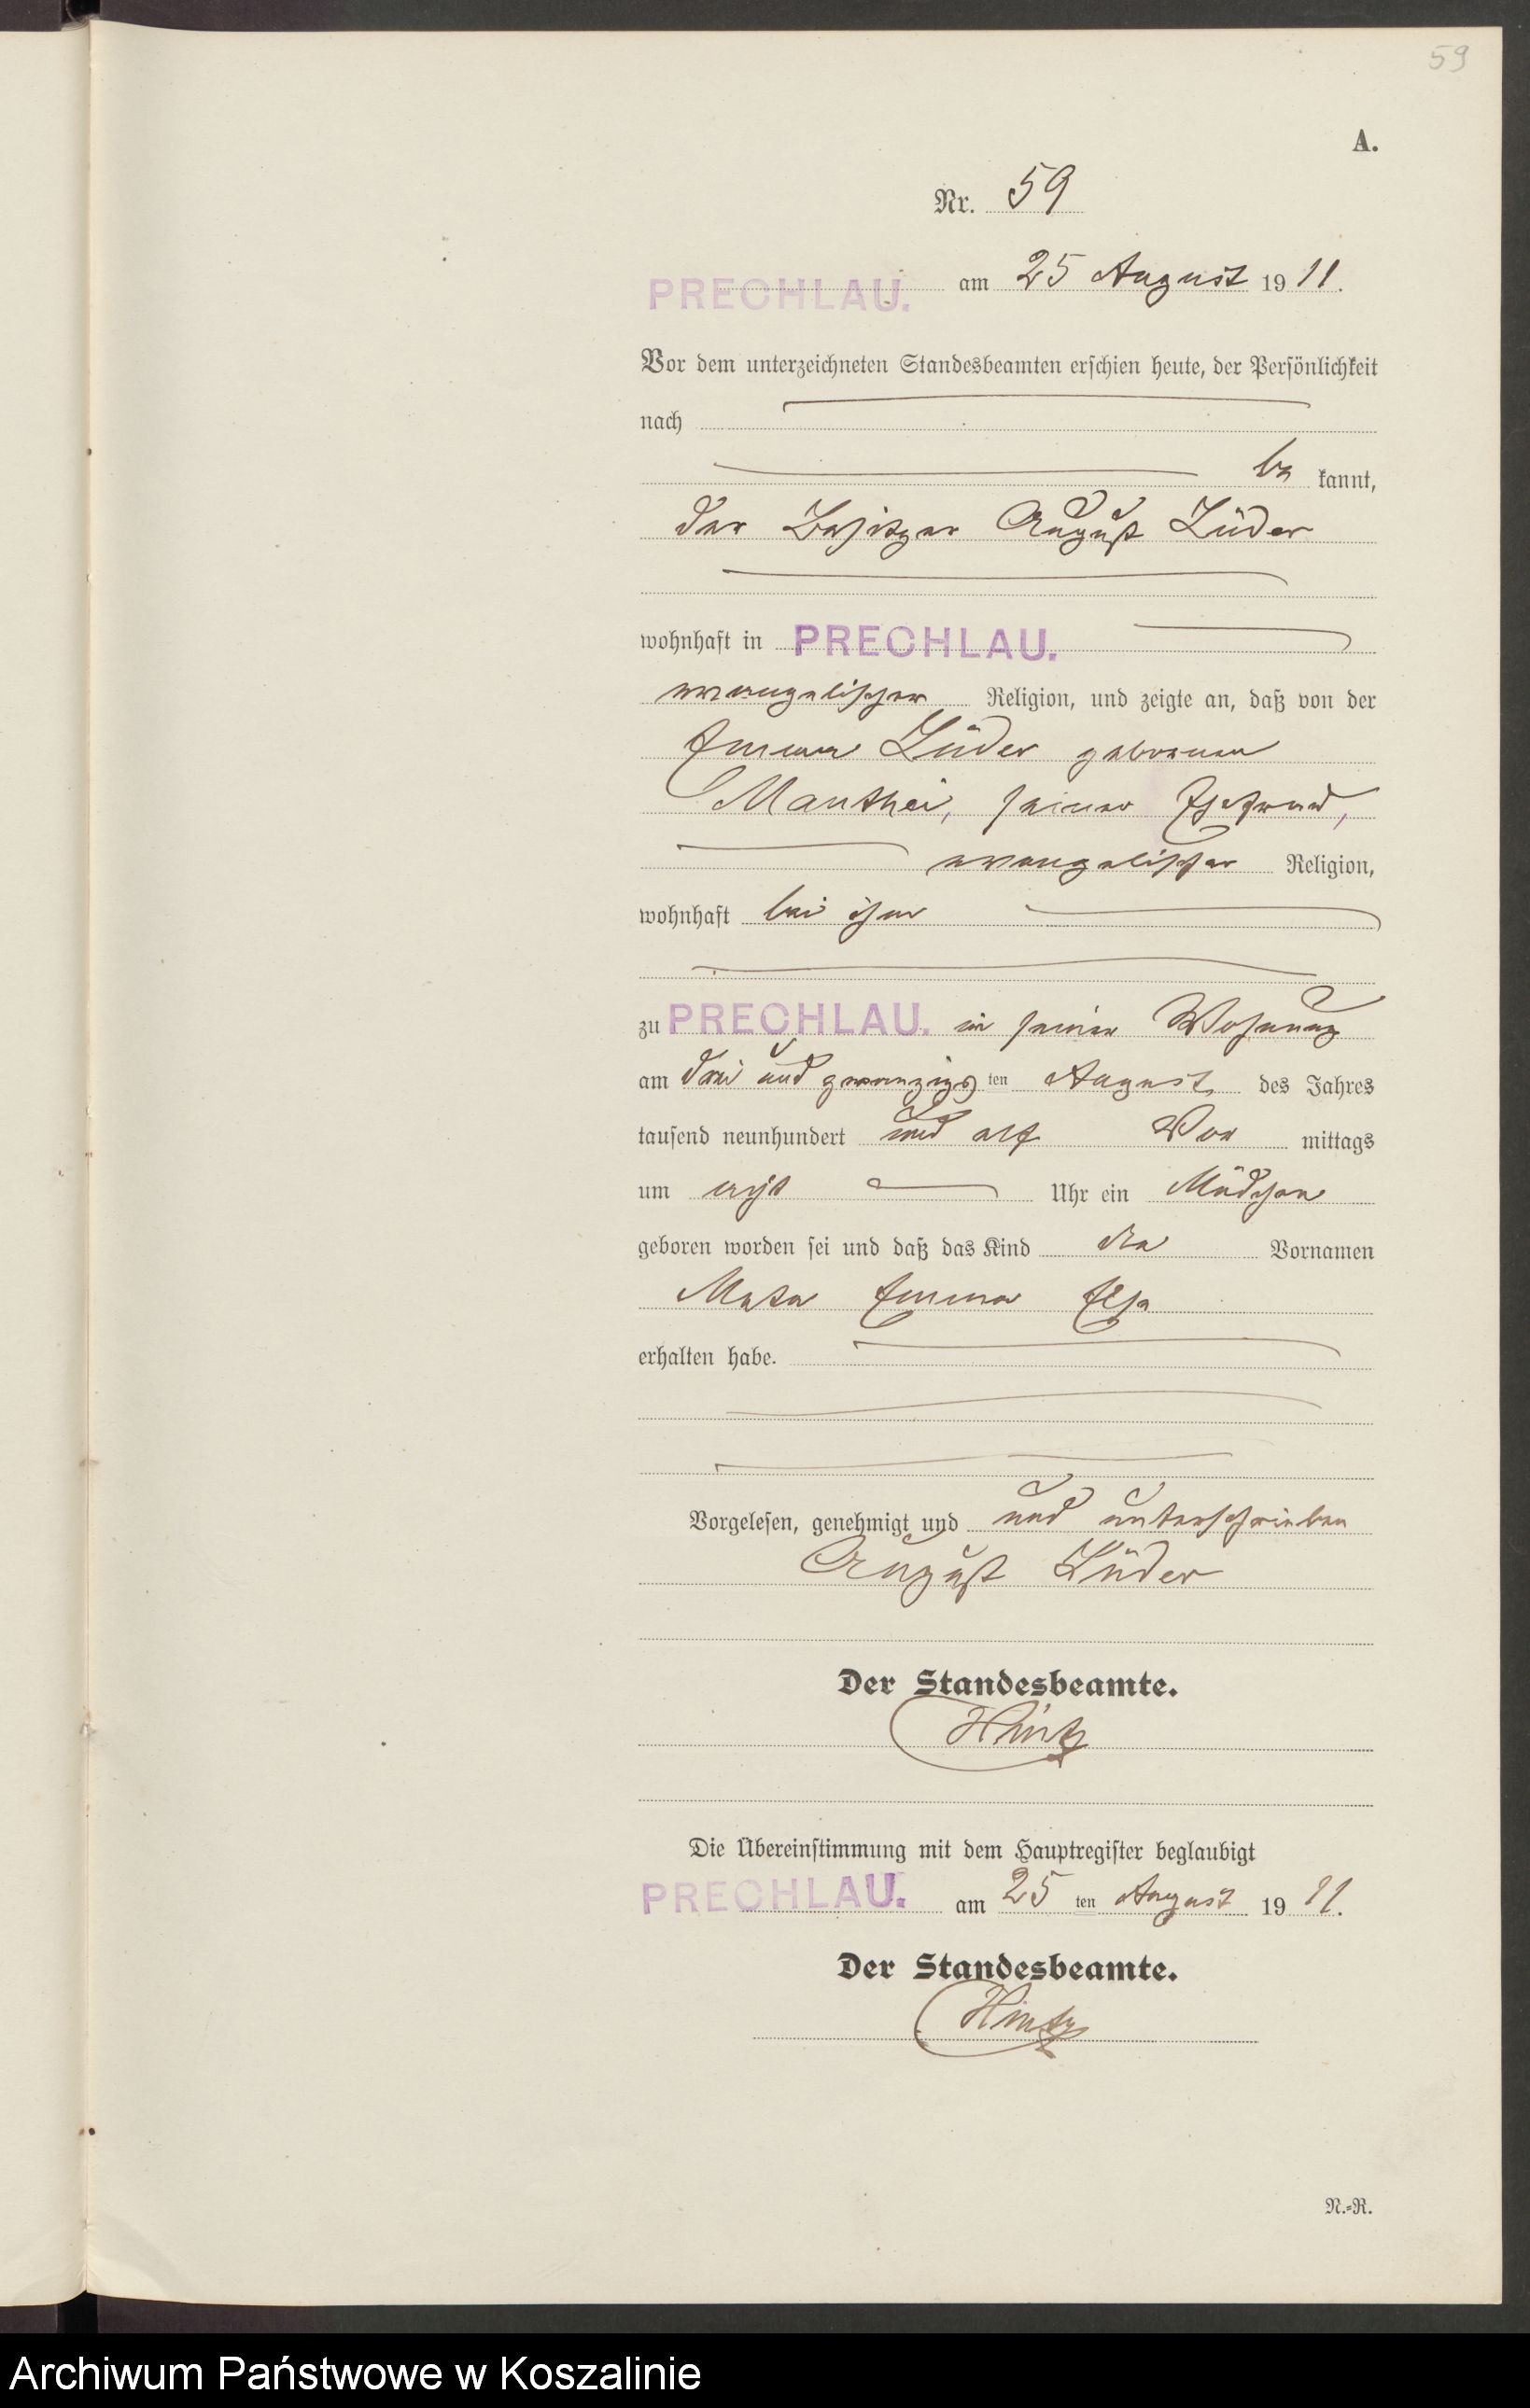 59
A.
Nr. 59
PRECHLAU. am 25 August 1911.
Vor dem unterzeichneten Standesbeamten erschien heute, der Persönlichkeit
nach
be kannt,
der Besitzer August Lüder
wohnhaft in PRECHLAU.
evangelischer Religion, und zeigte an, daß von der
Emma Lüder geborenen
Manthei, seiner Ehefrau,
evangelischer Religion,
wohnhaft bei ihm
zu PRECHLAU. in seiner Wohnung
am drei und zwanzigsten August des Jahres
tausend neunhundert und elf Vor mittags
um acht Uhr ein Mädchen
geboren worden sei und daß das Kind die Vornamen
Meta Emma Elsa
erhalten habe.
Vorgelesen, genehmigt und und unterschrieben
August Lüder
Der Standesbeamte.
Hintz
Die Übereinstimmung mit dem Hauptregister beglaubigt
PRECHLAU. am 25 ten August 1911.
Der Standesbeamte.
Hintz
N.-R.
Archiwum Państwowe w Koszalinie